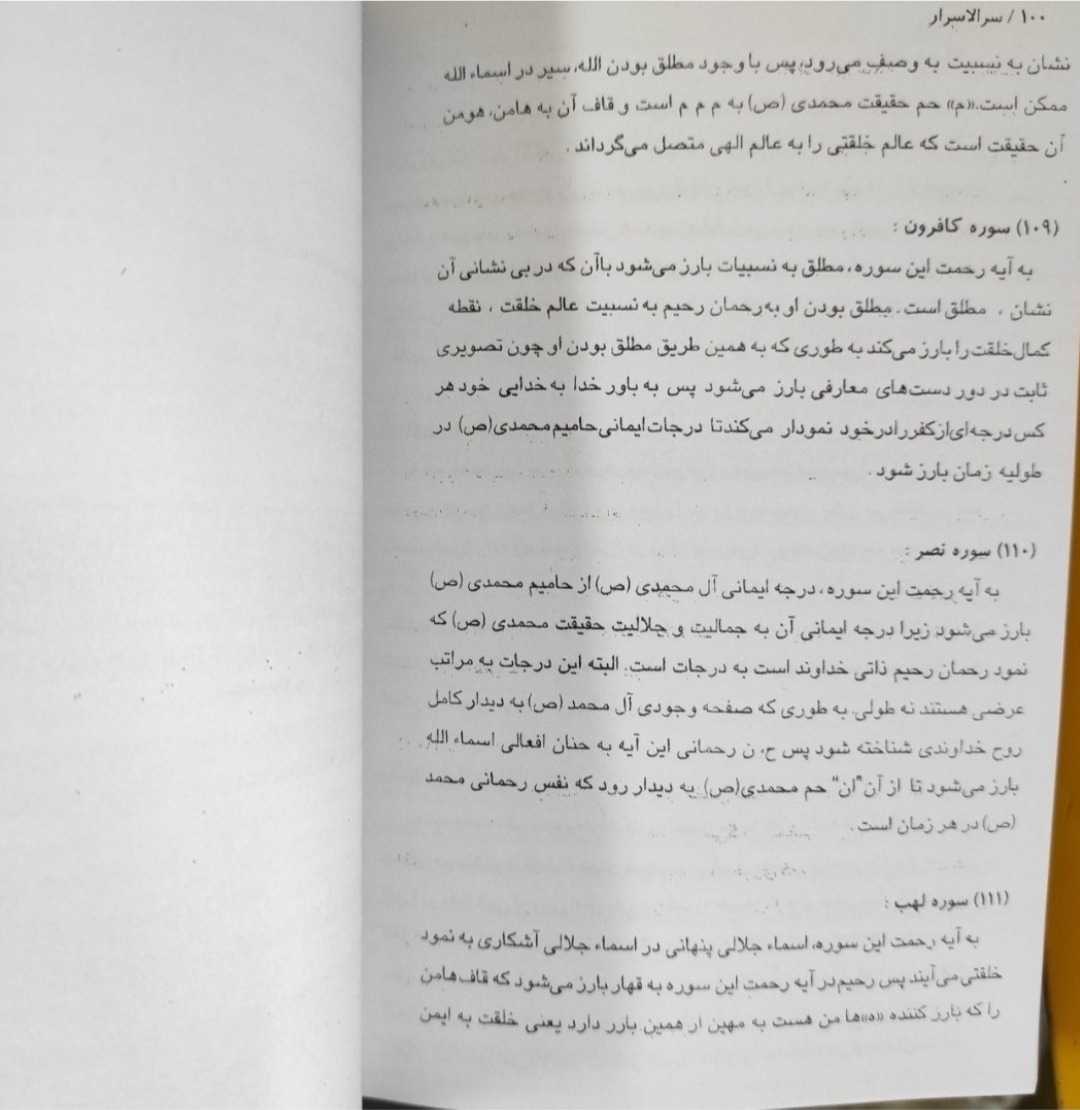 ۱۰۰ / سرالاسرار
نشان به نسبیت به وصف می‌رود، پس با وجود مطلق بودن الله، سیر در اسماء الله
ممکن است. «م» حم حقیقت محمدی (ص) به م م م است و قاف آن به هامن، هومن
آن حقیقت است که عالم خلقتی را به عالم الهی متصل می‌گرداند .
(۱۰۹) سوره کافرون :
به آیه رحمت این سوره، مطلق به نسبیات بارز می‌شود باآن که در بی نشانی آن
نشان ، مطلق است . مطلق بودن او به‌رحمان رحیم به نسبیت عالم خلقت ، نقطه
کمال‌خلقت را بارز می‌کند به طوری که به همین طریق مطلق بودن او چون تصویری
ثابت در دور دست‌های معارفی بارز می‌شود پس به باور خدا به خدایی خود هر
کس درجه‌ای‌از کفر را درخود نمودار می‌کند تا درجات ایمانی حامیم محمدی (ص) در
طولیه زمان بارز شود .
(۱۱۰) سوره نصر :
به آیه رحمت این سوره، درجه ایمانی آل محمدی (ص) از حامیم محمدی (ص)
بارز می‌شود زیرا درجه ایمانی آن به جمالیت و جلالیت حقیقت محمدی (ص) که
نمود رحمان رحیم ذاتی خداوند است به درجات است. البته این درجات به مراتب
عرضی هستند نه طولی به طوری که صفحه وجودی آل محمد (ص) به دیدار کامل
روح خداوندی شناخته شود پس ح، ن رحمانی این آیه به حنان افعالی اسماء الله
بارز می‌شود تا از آن "ان" حم محمدی(ص) به دیدار رود که نفس رحمانی محمد
(ص) در هر زمان است .
(۱۱۱) سوره لهب :
به آیه رحمت این سوره، اسماء جلالی پنهانی در اسماء جلالی آشکاری به نمود
خلقتی می‌آیند پس رحیم در آیه رحمت این سوره به قهار بارز می‌شود که قاف هامن
را که بارز کننده «ه» ها من هست به مهین از همین بارر دارد یعنی خلقت به ایمن